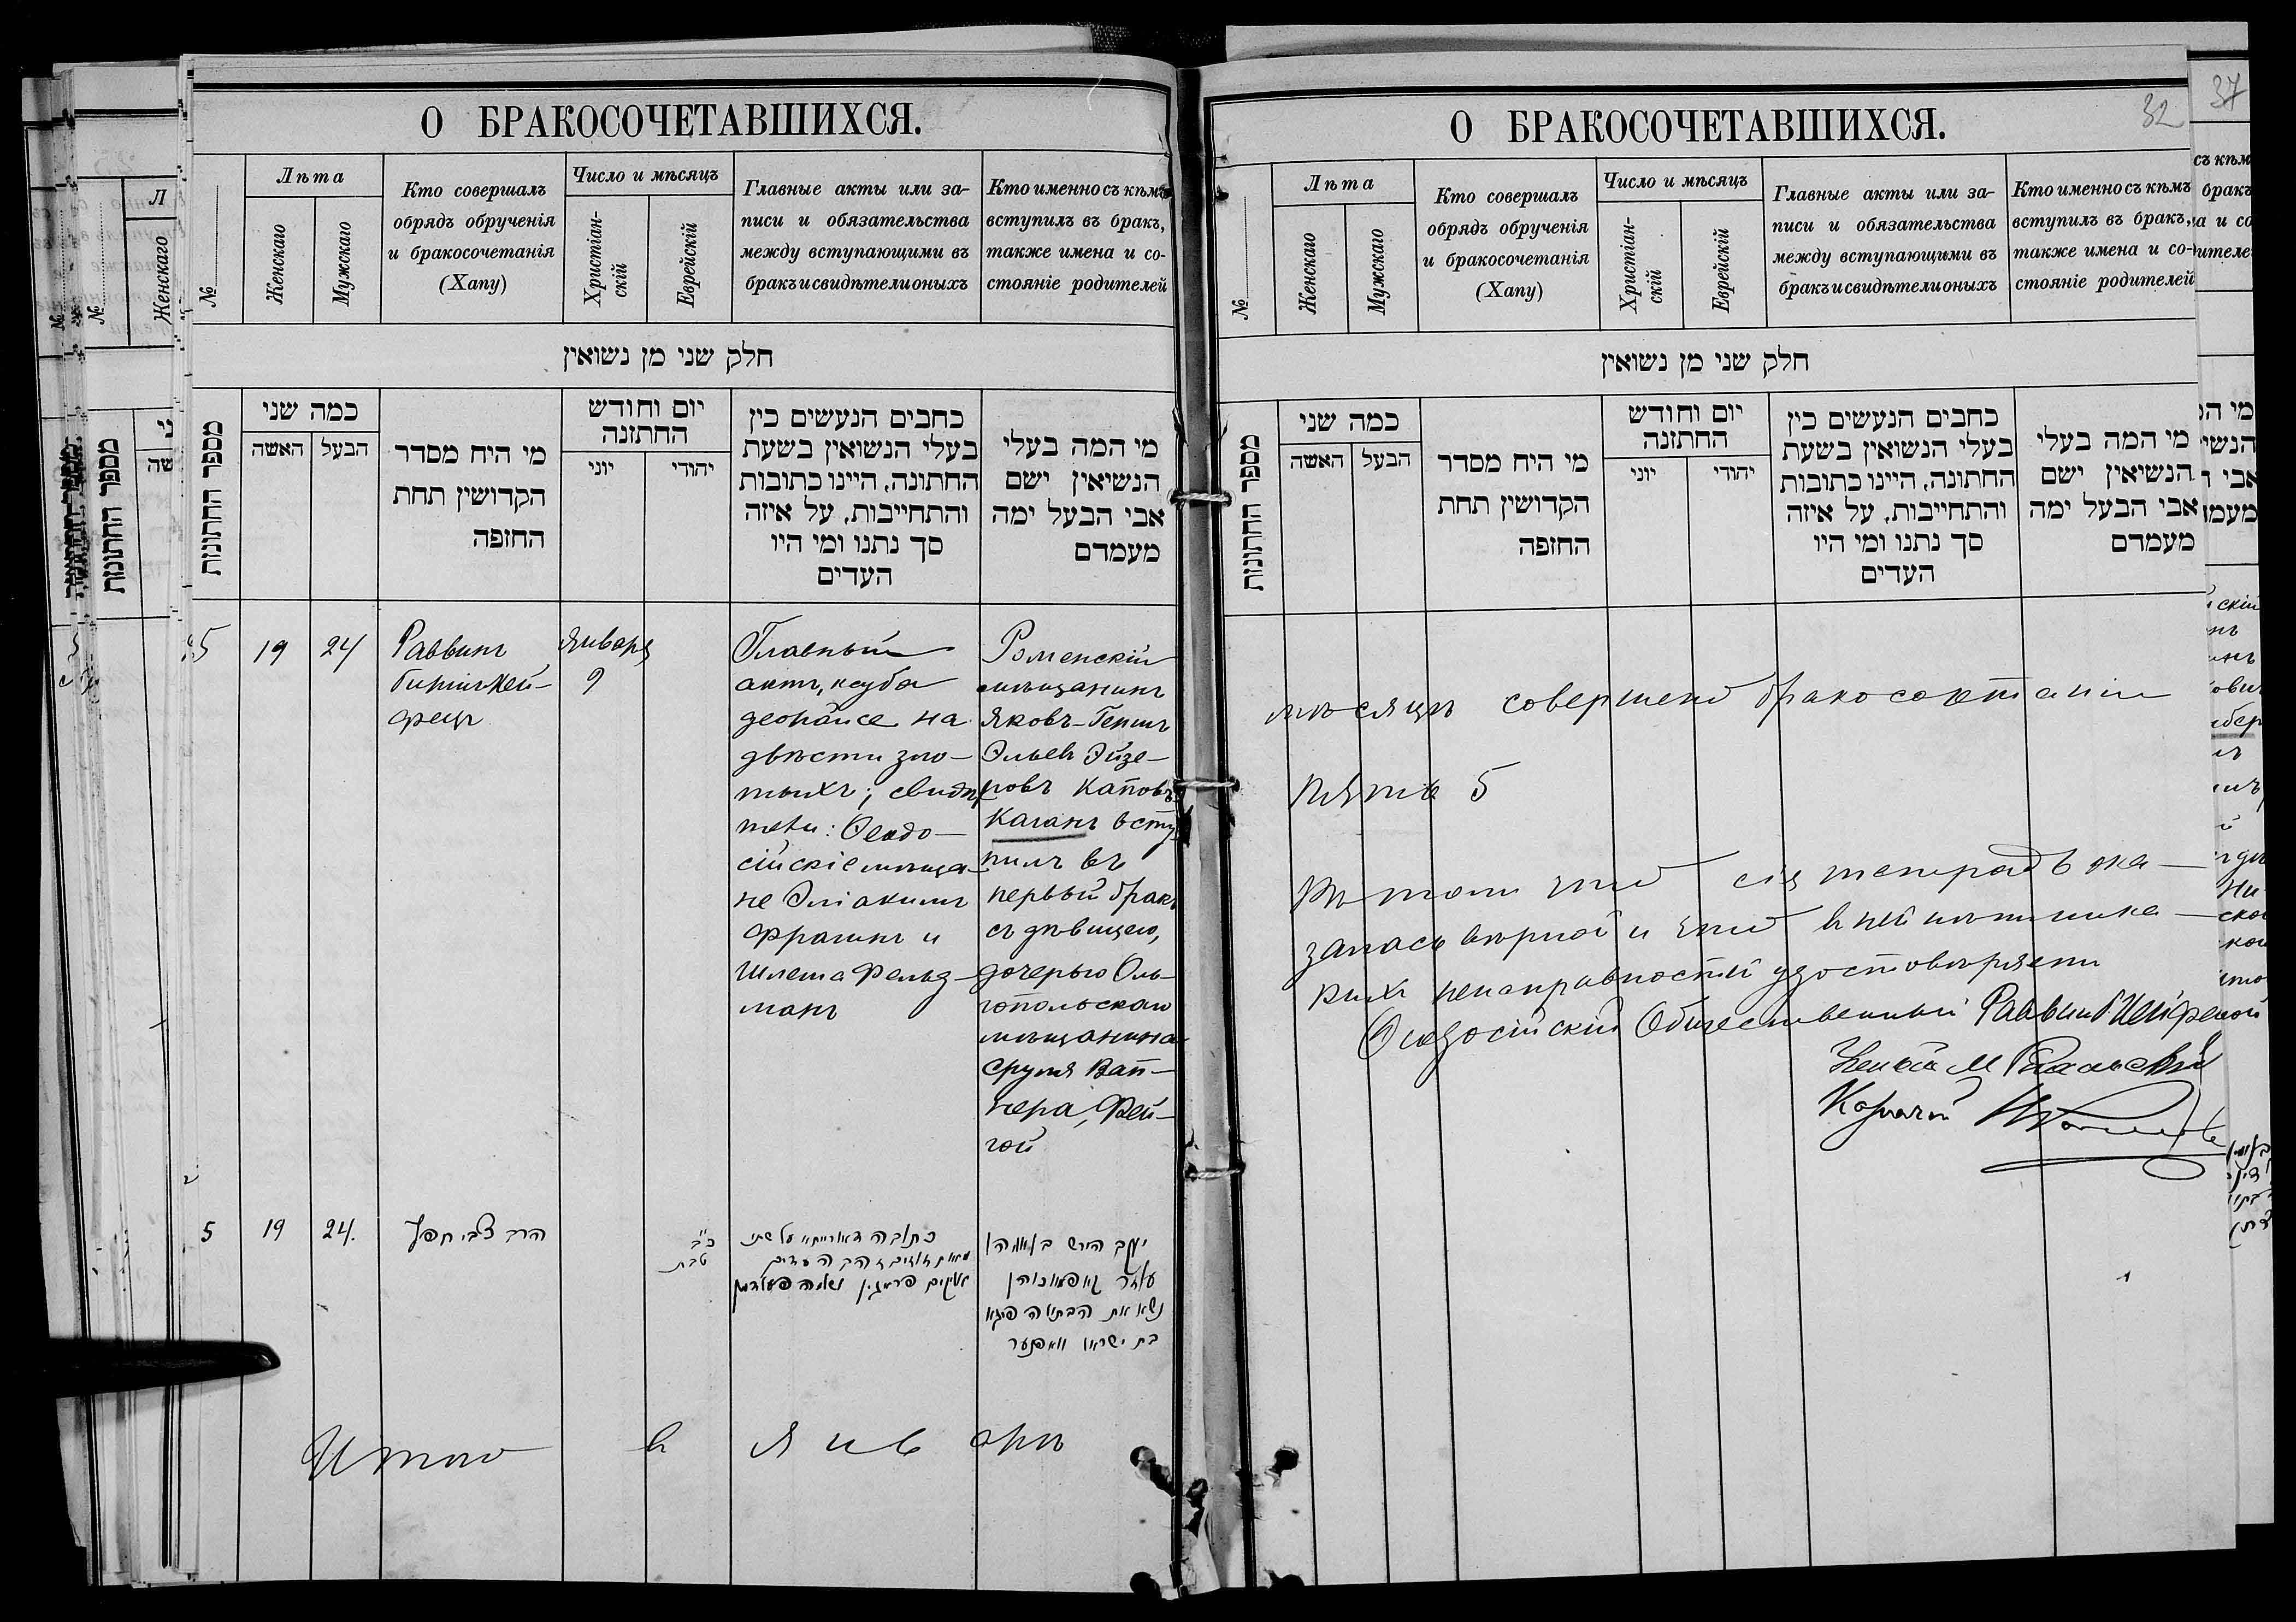 О БРАКОСОЧЕТАВШИХСЯ.
№
Лѣта
Женскаго
Мужскаго
Кто совершалъ
обрядъ обрученія
и бракосочетанія
(Хапу)
Число и мѣсяцъ
Христіан-
скій
Еврейскій
Главные акты или за-
писи и обязательства
между вступающими въ
бракъ и свидѣтели оныхъ
Кто именно съ кѣмъ
вступилъ въ бракъ,
также имена и со-
стояніе родителей
חלק שני מן נשואין
מספר החתונות
כמה שני
האשה
הבעל
מי היח מסדר
הקדושין תחת
החופה
יום וחודש
החתונה
יוני
יהודי
כחבים הנעשים כין
בעלי הנשואין בשעת
החתונה, היינו כתובות
והתחייבות, על איזה
סך נתנו ומי היו
העדים
מי המה בעלי
הנשיאין ישם
אבי הבעל ימה
מעמדם
5
19
24
Раввинъ
фецъ
Января
9
Главный
актъ, ксуба
деорайсе на
двѣсти зло-
тыхъ; свидѣ
тели: Ѳеодо-
сійскіе мѣща-
не Эліакимъ
Фрагинъ и
Шлема Фельд-
манъ
Роменскій
мѣщанинъ
Яковъ-Гершъ
Эльевъ Эйзе-
ровъ Каповъ
Каганъ всту
пилъ въ
первый бракъ
съ дѣвицею,
дочерью Оль-
гопольскаго
мѣщанина
Сруля Вап-
нера, Фей-
гой
5
19
24.
הרב צבי חפץ
כ"ב
טבת
כתובה דאורייתא על שתי
נשא את הבתולה פיגא
בת ישראל וואפנער
Итого
в
Янв
арѣ
О БРАКОСОЧЕТАВШИХСЯ.
32
37
№
Лѣта
Женскаго
Мужскаго
Кто совершалъ
обрядъ обрученія
и бракосочетанія
(Хапу)
Число и мѣсяцъ
Христіан-
скій
Еврейскій
Главные акты или за-
писи и обязательства
между вступающими въ
бракъ и свидѣтели оныхъ
Кто именно съ кѣмъ
вступилъ въ бракъ,
также имена и со-
стояніе родителей
חלק שני מן נשואין
מספר החתונות
כמה שני
האשה
הבעל
מי היח מסדר
הקדושין תחת
החופה
יום וחודש
החתונה
יוני
יהודי
כחבים הנעשים כין
בעלי הנשואין בשעת
החתונה, היינו כתובות
והתחייבות, על איזה
סך נתנו ומי היו
העדים
מי המה בעלי
הנשיאין ישם
אבי הבעל ימה
מעמדם
мѣсяцѣ совершено бракосочетаній
пять 5
Въ томъ что сія тетрадь ока-
залась вѣрной и что в ней нѣтъ ника-
кихъ неисправностей удостовѣряетъ
Ѳеодосійскій Общественный Раввинъ